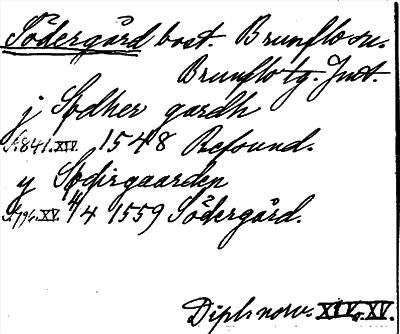 Södergård bost. Brunflo sn.
Brunflo tg. Jmt.
j Sødher gardh
S. 841. XIV. 1548 Befound.
y Sødirgaarden
S. 196. XV. 4/4 1559 Södergård.
Dipl. norv. XIV o. XV.